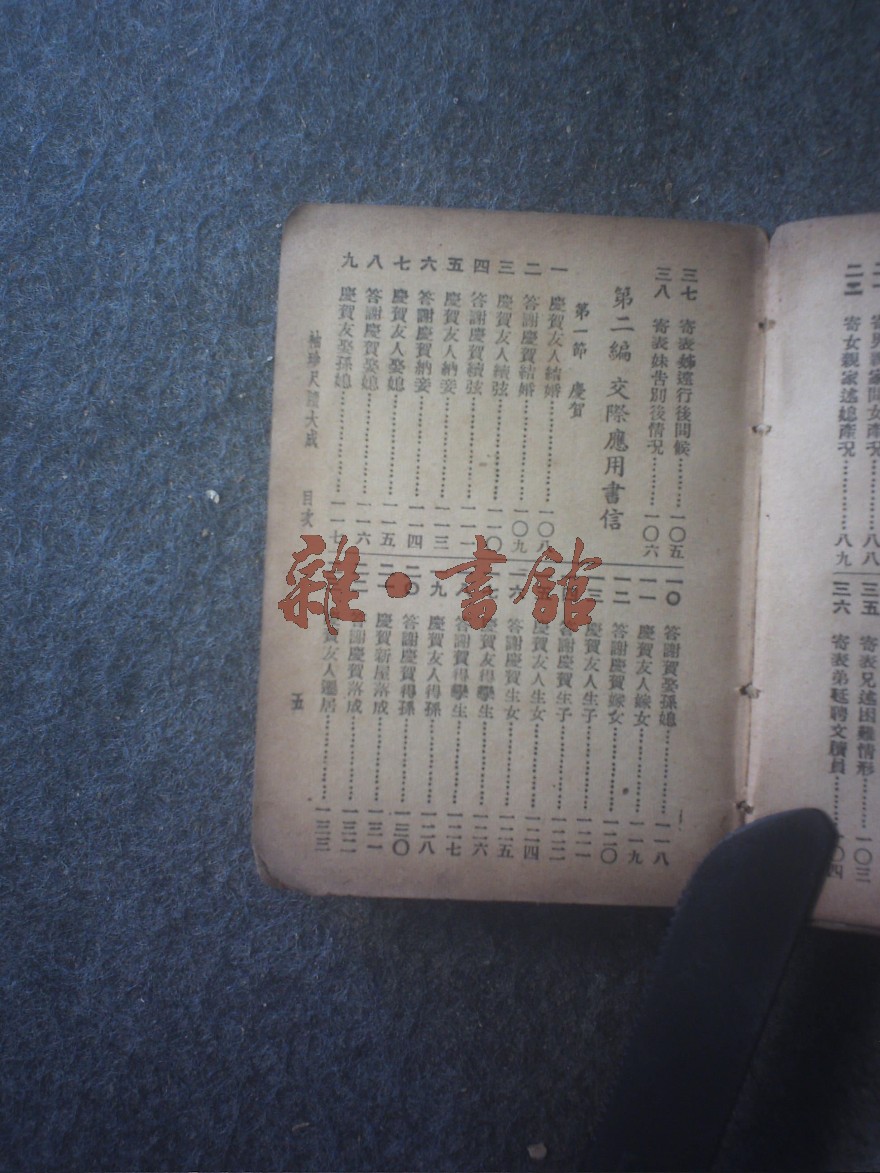 三七 寄表姊遠行後問候 一〇五
三八 寄表妹告別後情況 一〇六
第二編 交際應用書信
第一節 慶賀
一 慶賀友人結婚 一〇八
二 答謝慶賀結婚 一〇九
三 慶賀友人續弦 一一〇
四 答謝慶賀續弦 一一一
五 慶賀友人納妾 一一三
六 答謝慶賀納妾 一一四
七 慶賀友人娶媳 一一五
八 答謝慶賀娶媳 一一六
九 慶賀友娶孫媳 一一七
一〇 答謝賀娶孫媳 一一八
一一 慶賀友人嫁女 一一九
一二 答謝慶賀嫁女 一二〇
一三 慶賀友人生子
答謝慶賀生子
慶賀友人生女 一二四
答謝慶賀生女 一二五
慶賀友得孿生 一二六
答謝賀得孿生 一二七
慶賀友人得孫 一二八
二〇 答謝慶賀得孫 一三〇
二一 慶賀新屋落成 一三一
答謝慶賀落成 一三二
賀友人遷居 一三三
袖珍尺牘大成 目次 五
寄男親家問女產況 八八
二二 寄女親家述媳產況 八九
三五 寄表兄述困難情形 一〇三
三六 寄表弟延聘文牘員 一〇四
雜·書館